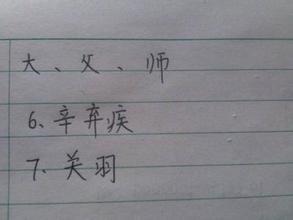 大、父、师
6、辛弃疾
7、关羽